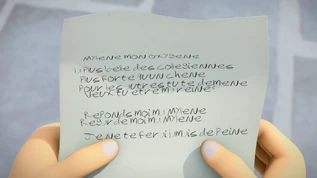 Mylene mon oxygene
Li plus bele des colegiennes
Plus forte qu'un chene
Pour les autres tu te demene
Veux tu etre mi reine
Reponds moi mi Mylene
Regirde moi mi Mylene
Je ne te feri jimis de peine